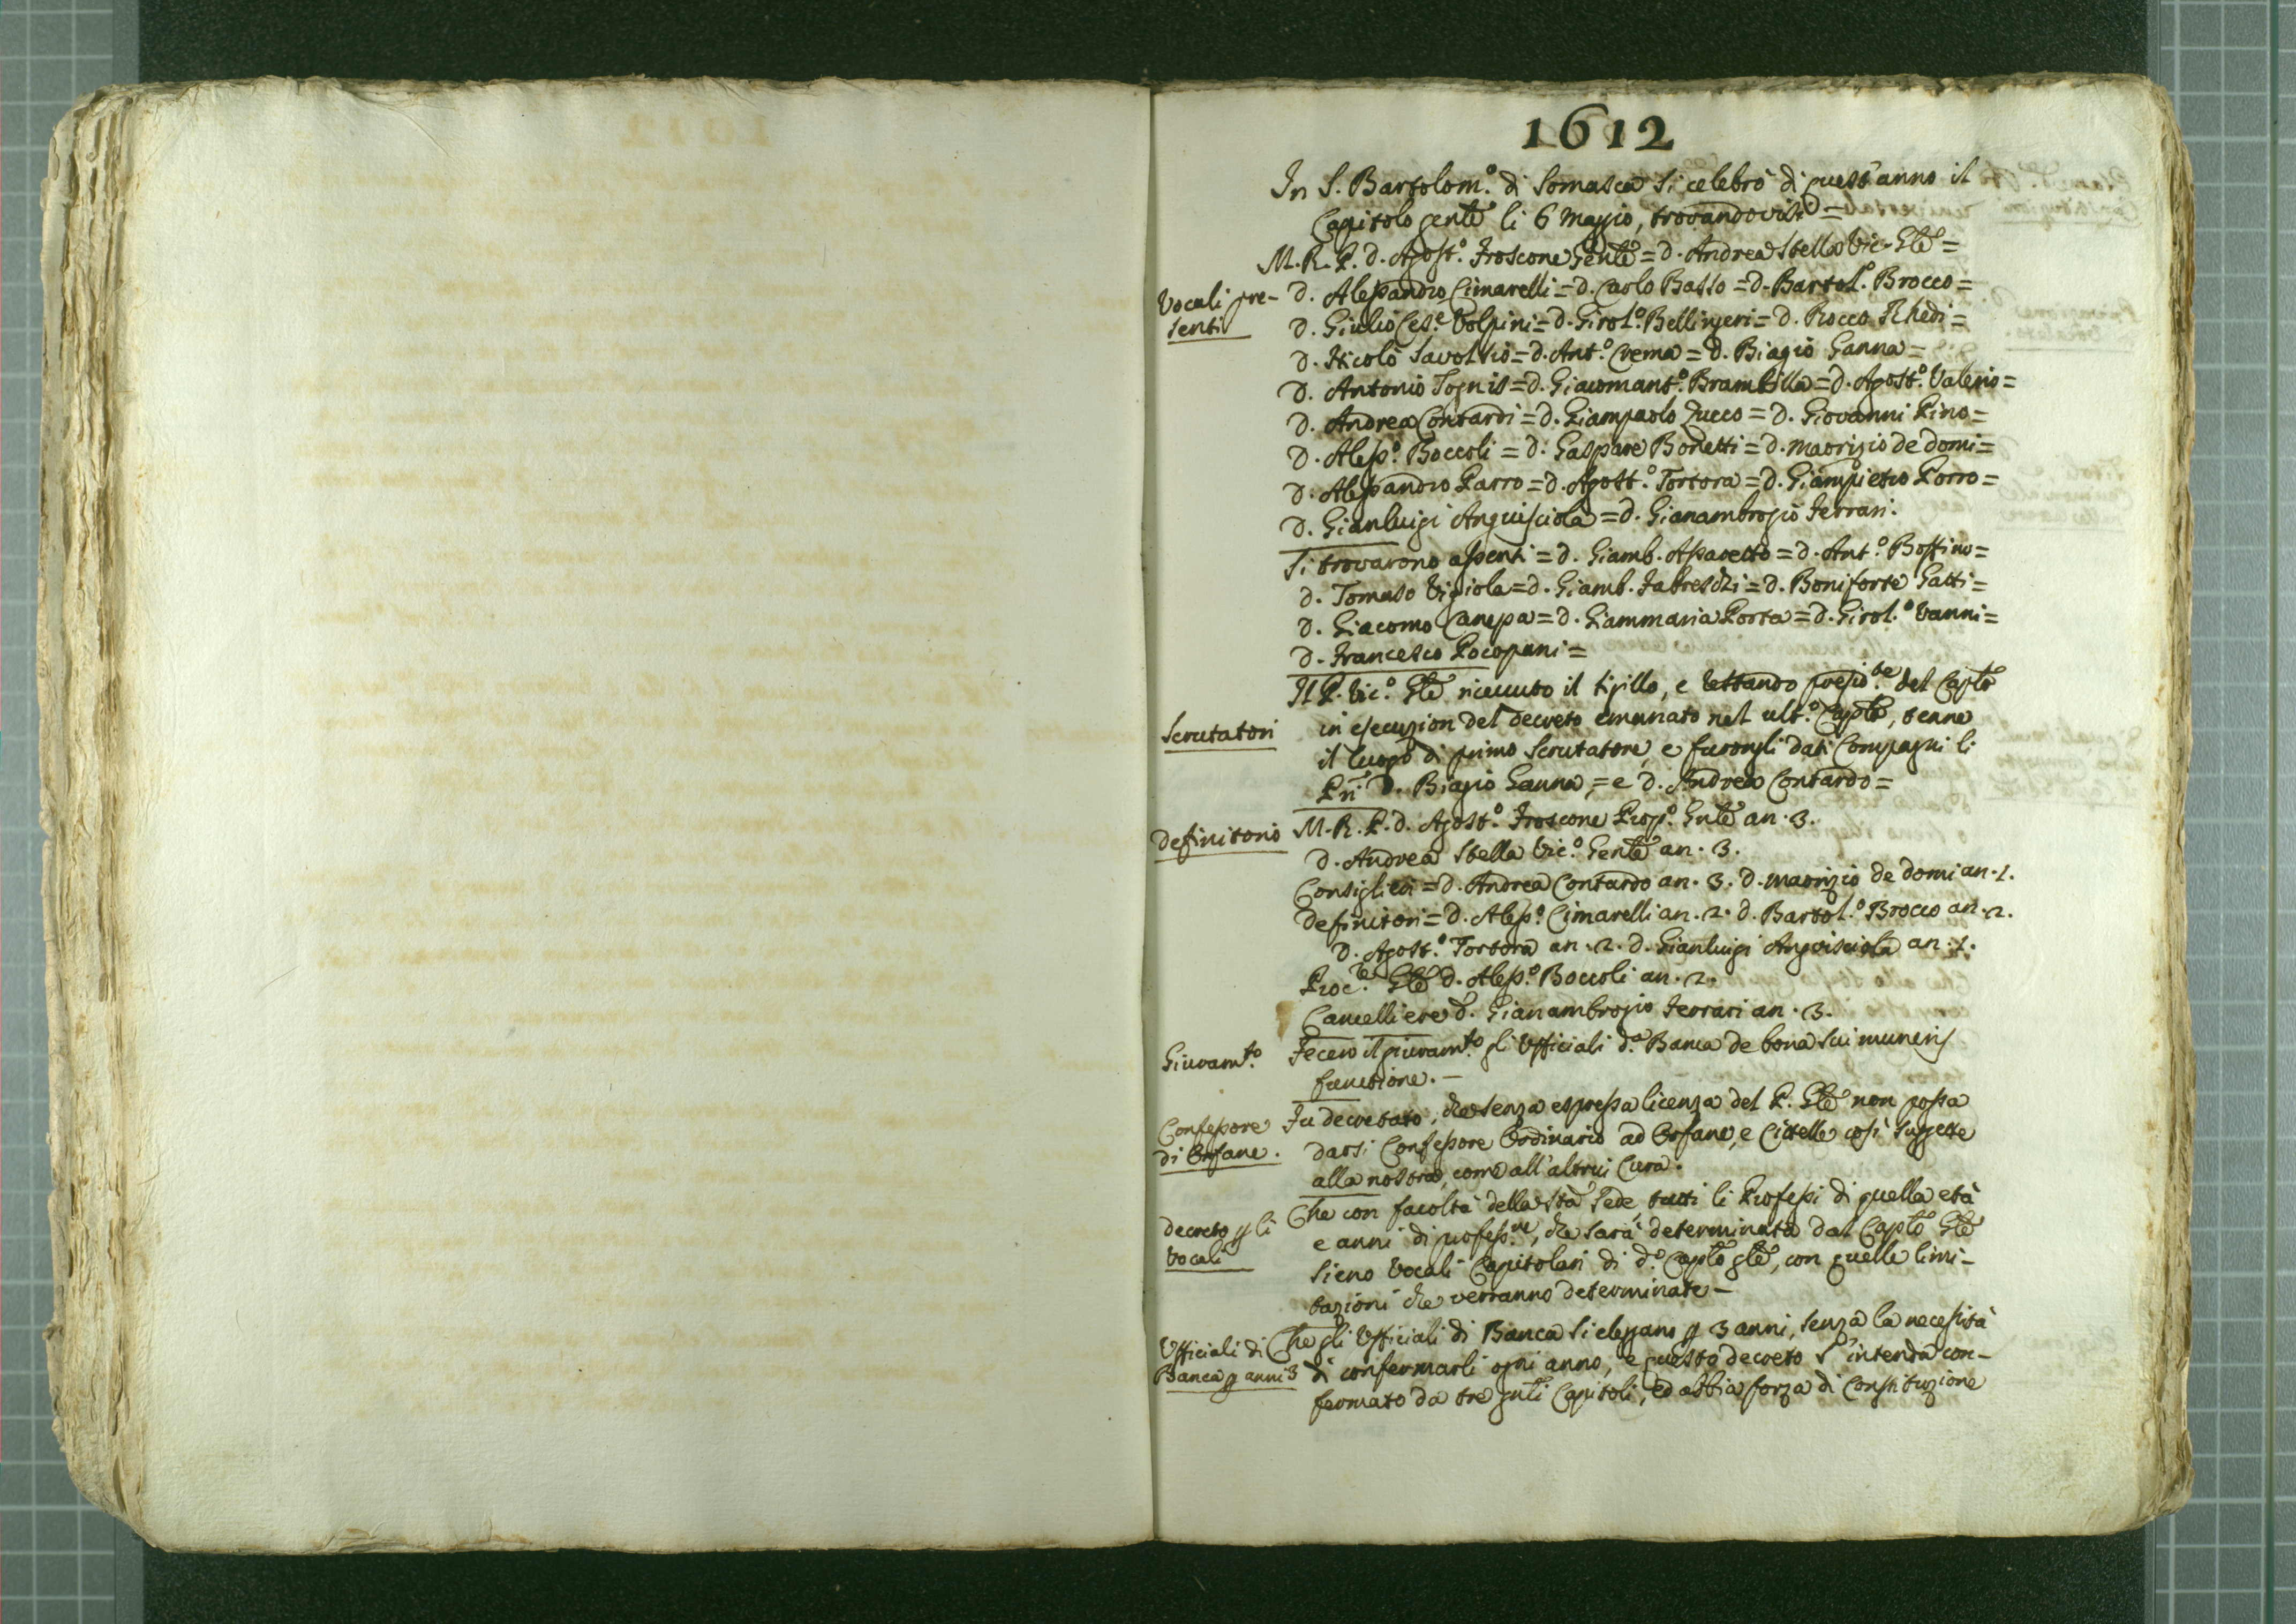 1612
In S. Bartolom.º di Somasca si celebrò di quest'anno il
Capitolo genle li 6 Maggio, trovandovisi =
M. R. P. D. Agost.º Froscone Genle = D. Andrea Stella Vic. Gle =
Vocali pre-
senti
D. Alessandro Cimarelli = D. Carlo Basso = D. Bartol.º Brocco =
D. Giulio Ces.e Volpini = D. Girol.º Bellingeri = D. Rocco Rhedi =
D. Nicolò Savolsio = D. Ant.º Crema = D. Biagio Ganna =
D. Antonio Tognis = D. Giacomant.º Brambilla = D. Agost.º Valerio =
D. Andrea Contardi = D. Giampaolo Zucco = D. Giovanni Pino =
D. Aless.º Boccoli = D. Gaspare Bonetti = D. Maorizio de Domi =
D. Alessandro Parro = D. Agost.º Tortora = D. Giampietro Porro =
D. Gianluigi Anguisciola = D. Gianambrogio Ferrari.
Si trovarono assenti = D. Giamb. Assaretto = D. Ant.º Bossino =
D. Tomaso Vigiola = D. Giamb. Fabreschi = D. Boniforte Gatti =
D. Giacomo Canepa = D. Giammaria Porta = D. Girol.º Vanni =
D. Francesco Pocopani =
Il P. Vic.º Gle riceuuto il sigillo, e restando del Caplo
Scrutatori
in esecuzion del decreto emanato nel ult.º Caplo, tenne
il luogo di primo Scrutatore, e furongli dati Compagni li
Pri D. Biagio Ganna, = e D. Andrea Contardo =
Definitorio
M. R. P. D. Agost.º Froscone Prop.º Gnle an. 3.
D. Andrea Stella Vic.º Genle an. 3.
Consiglieri = D. Andrea Contardo an. 3. D. Maorizio de Domi an. 1.
Definitori = D. Aless.º Cimarelli an. 2. D. Bartol.º Brocco an. 2.
D. Agost.º Tortora an. 2. D. Gianluigi Anguisciola an. 1.
Proc.re Gle D. Aless.º Boccoli an. 2.
Cancelliere D. Gianambrogio Ferrari an. 3.
Giuram.to
Fecero il giuram.to gli Ufficiali d.a Banca de bona sui muneris
functione. -
Confessore
di Orfane.
Fu decretato, che senza espressa licenza del P. Gle non possa
darsi Confessore Ordinario ad Orfane, e Cittelle così suggette
alla nostra, come all'altrui Cura.
Decreto p li
Vocali
Che con facoltà della Sta Sede, tutti li Professi di quella età
e anni di profess.ne, che sarà determinata dal Caplo Gle
sieno Vocali Capitolari di d.º Caplo gle, con quelle limi-
tazioni che verranno determinate -
Ufficiali di
Banca p anni 3
Che gli Ufficiali di Banca si eleggano p 3 anni, senza la necessità
di confermarli ogni anno, e questo decreto s'intenda con-
fermato da tre gnli Capitoli, ed abbia forza di Constituzione